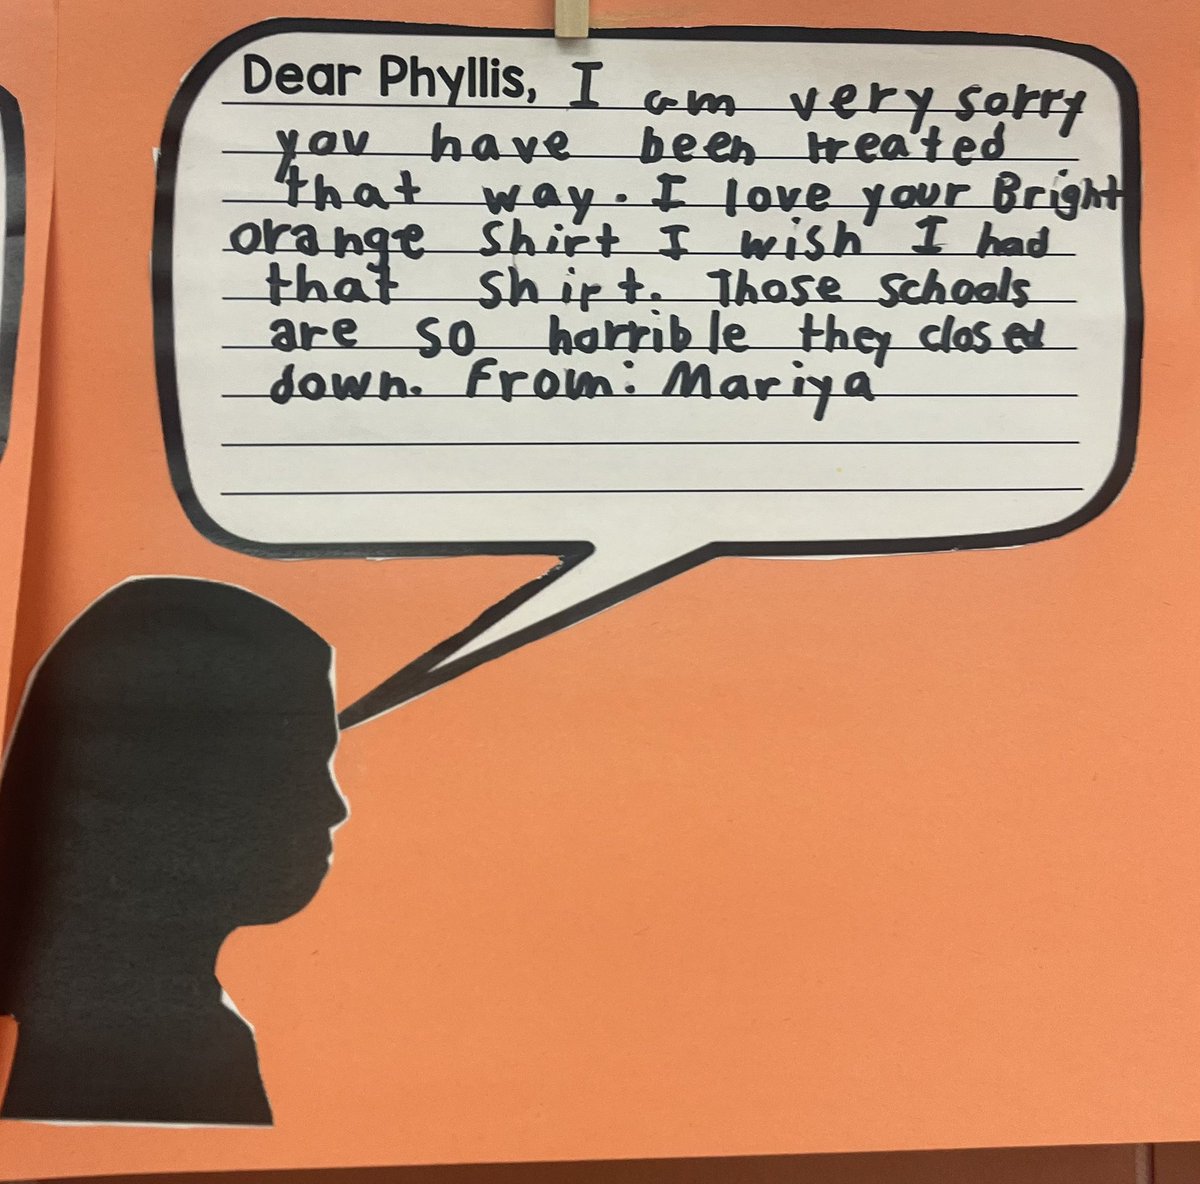 Dear Phyllis, I am very sorry
you have been treated
that way. I love your Bright
orange shirt I wish I had
that shirt. Those schools
are so horrible they closed
down. From: Mariya